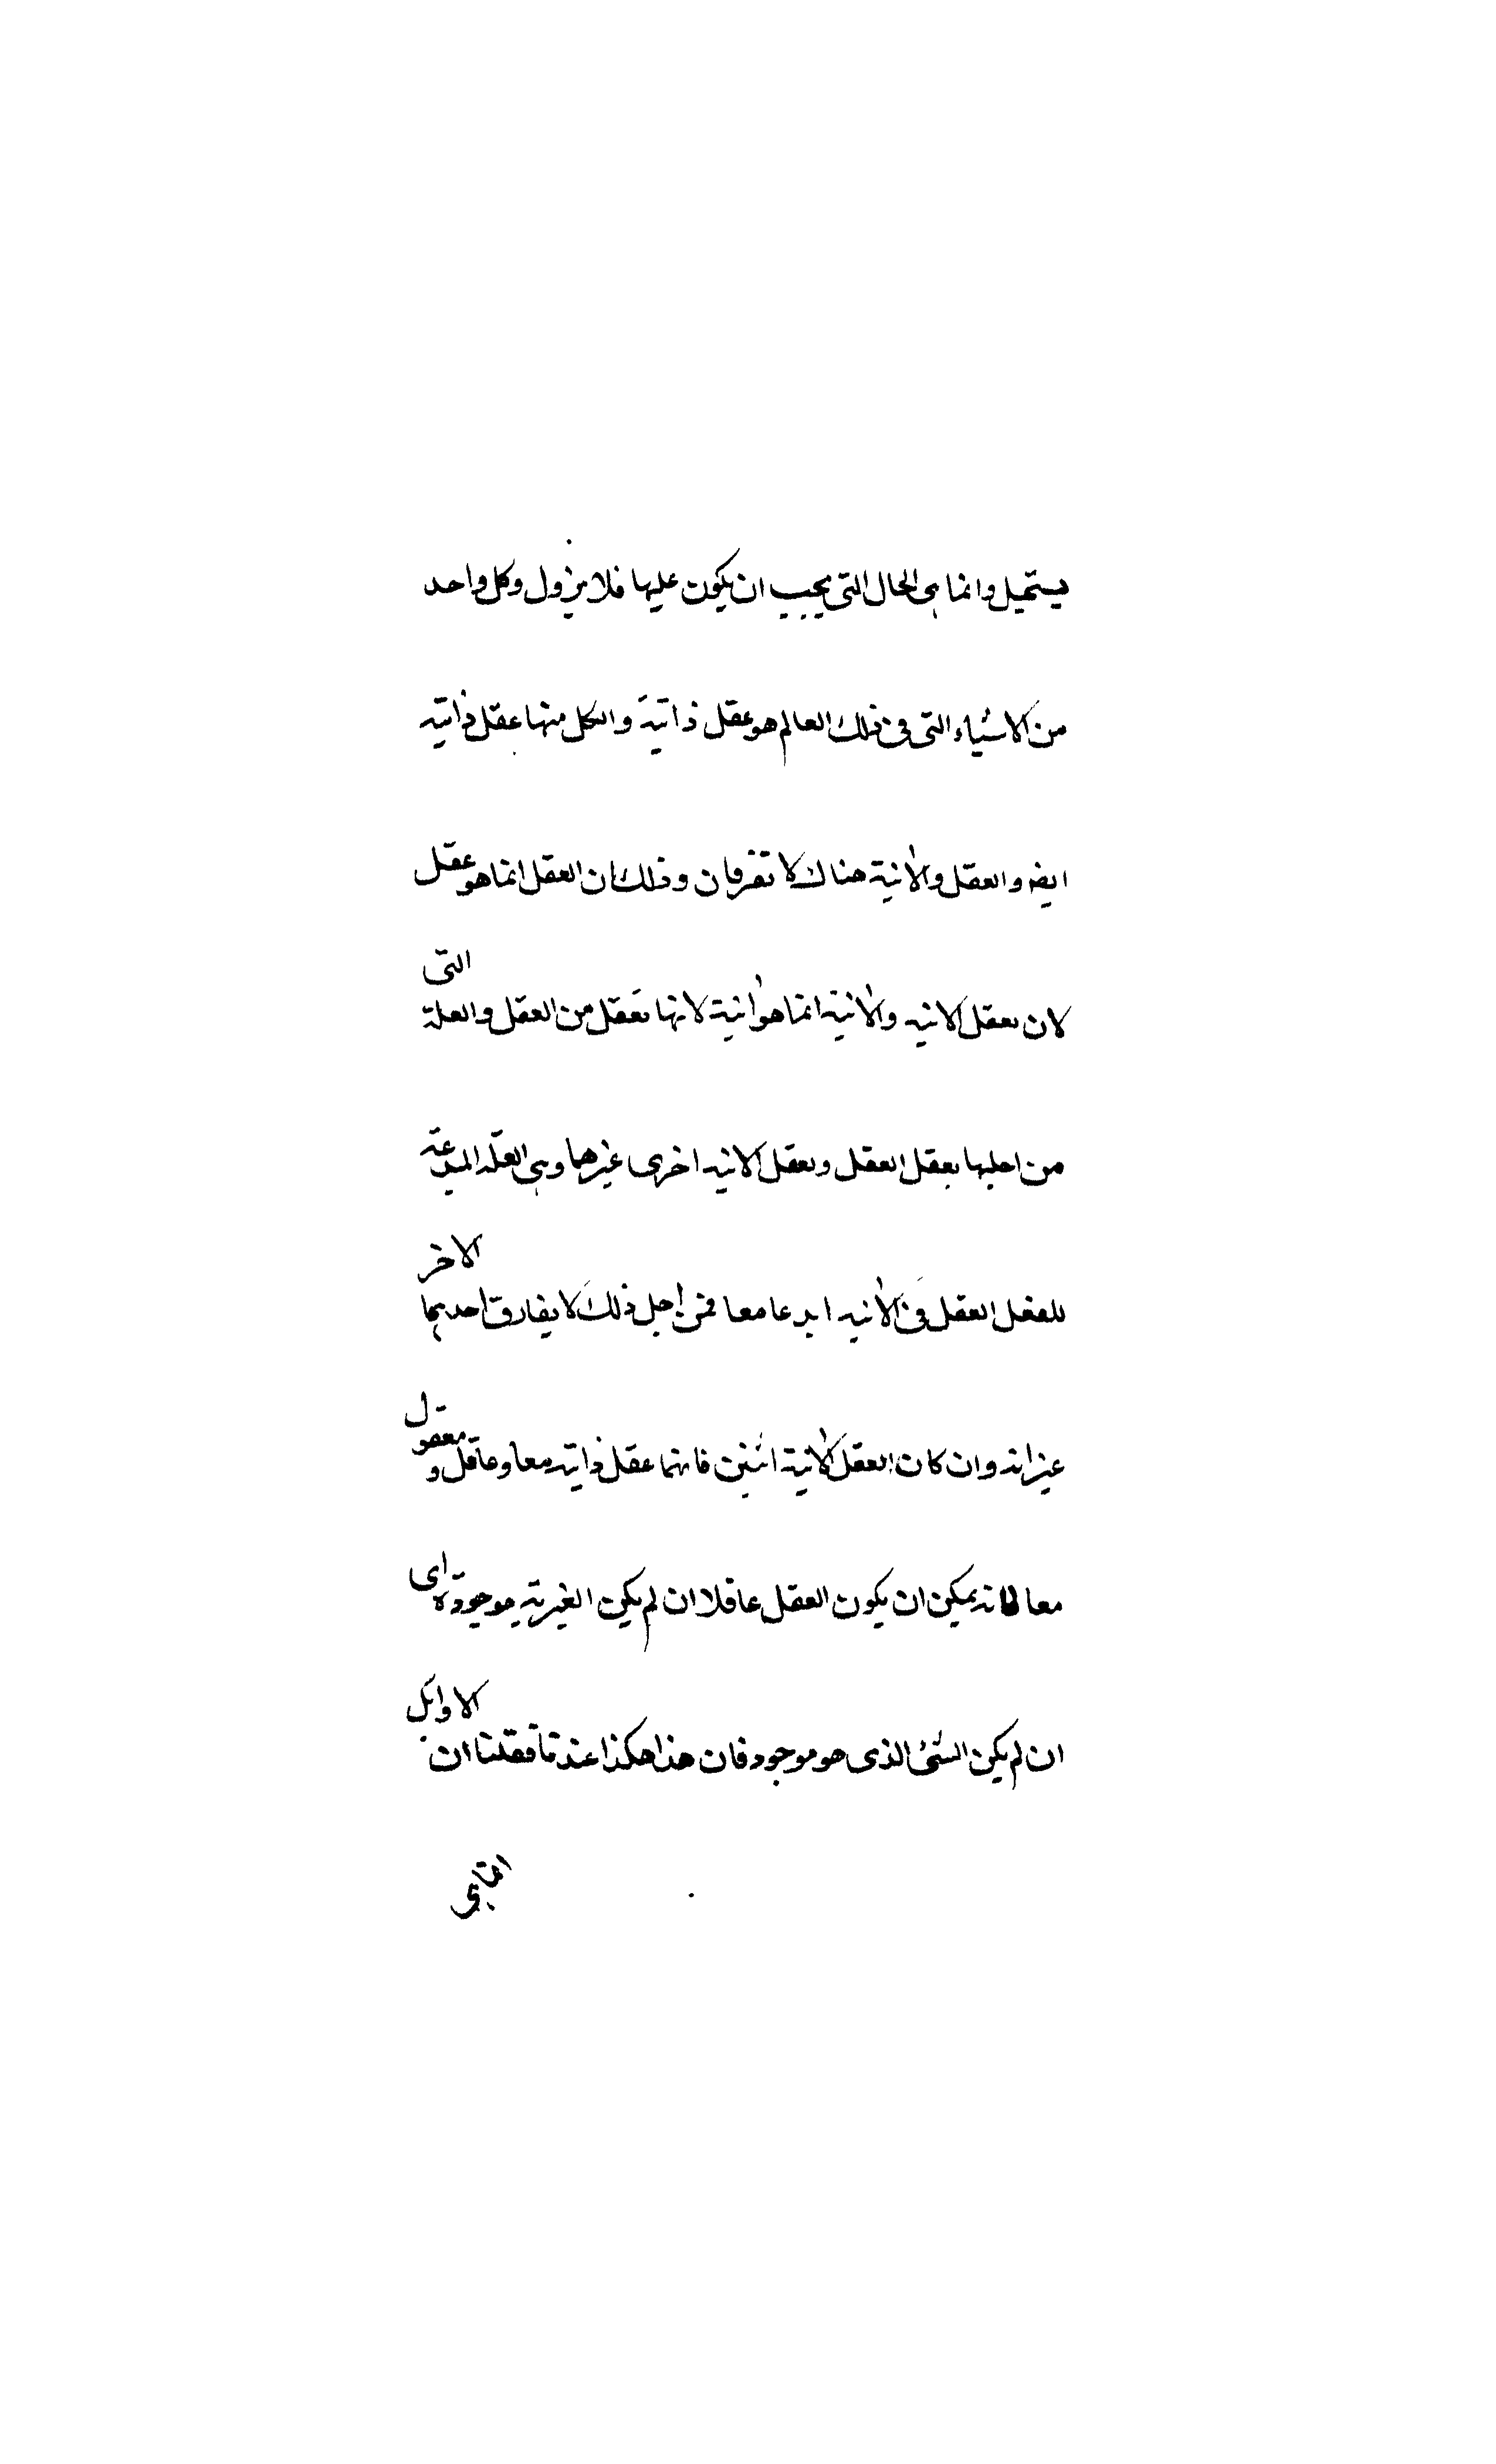 يستحيل وانما هي الحال التي يجب ان يكون عليها فلا يزول وكل واحد
من الاشياء التي في ذلك العالم هو عقل ذاتية والكل منها عقل ذاتيه
ايضه والعقل والانية هناك لا تفرقان وذلك ان العقل انما هو عقل
لان يعقل الانيه والانية انما هو انية لانها تعقل من العقل والعلة التي
من اجلها يعقل العقل ويعقل الانيه اخرى غيرهما وهي العلة المبدعة
للعقل العقل في الانيه ابدعا معا فمن اجل ذلك لا يفارق احديهما الاخر
غير انه وان كان العقل الانية اثنين فانهما عقل ذاتيه معا وعاقل ومعقول
معا لانه يمكن ان يكون العقل عاقلا ان لم يكن الغيرية موجودة اى
ان لم يكن الشئ الذى هو موجود فان هذا هكذا عندنا فقلنا ان الاوائل
انما هي